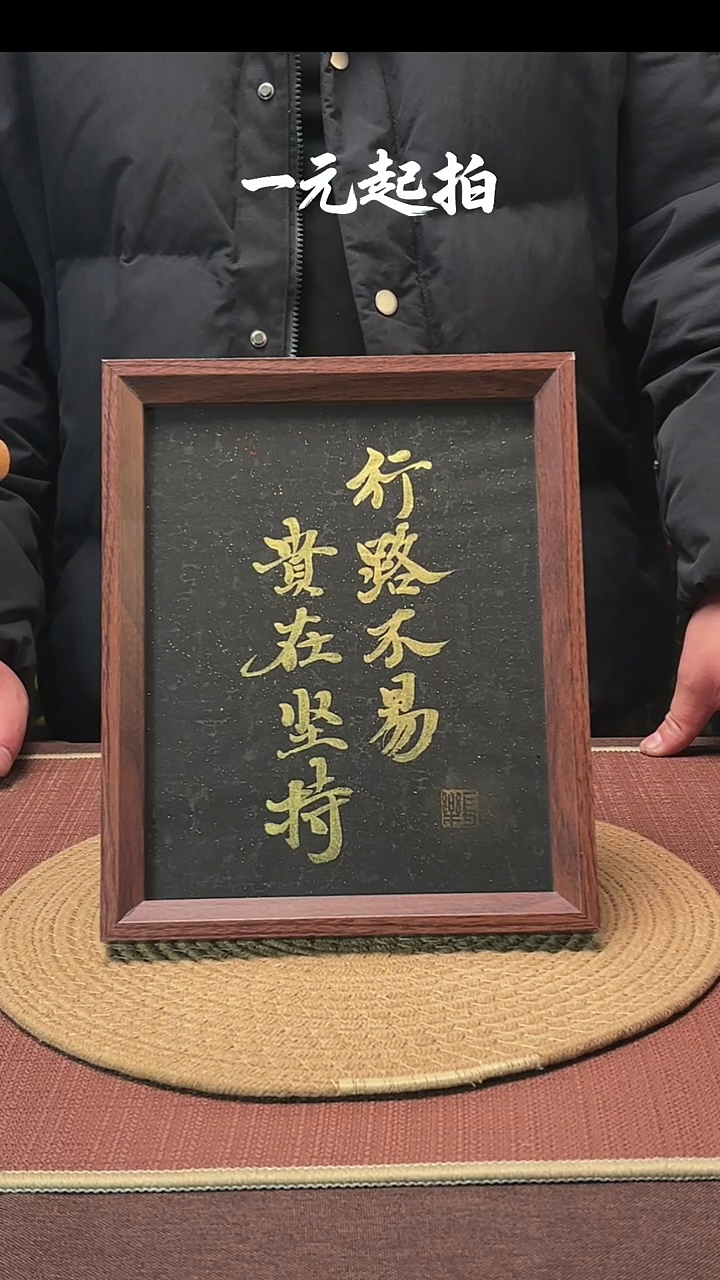 一元起拍
行路不易
貴在坚持